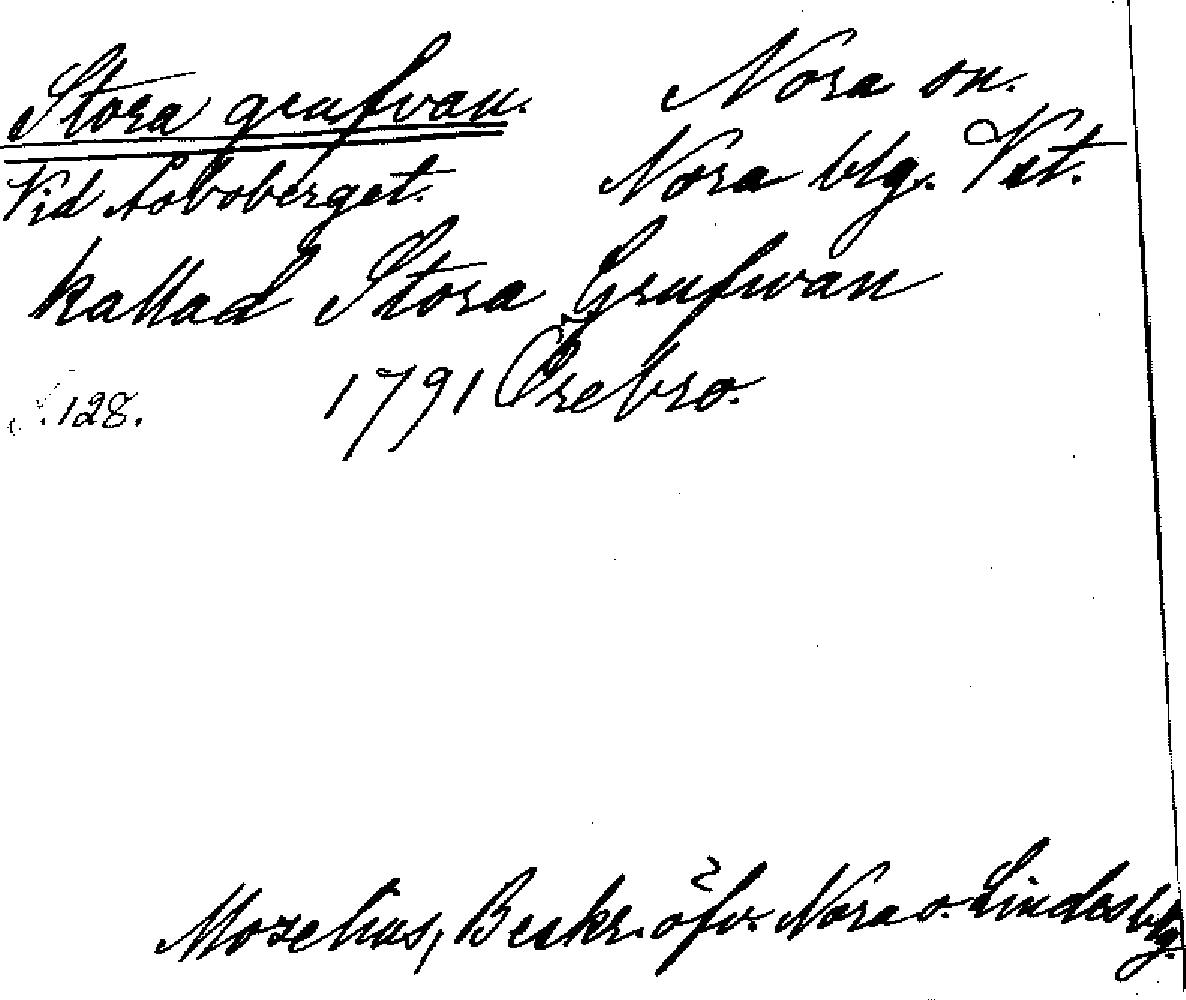 Stora grufvan. Nora sn.
Vid Åsboberget. Nora blg. Vst.
kallad Stora Grufwan
S. 128. 1791 Örebro.
Mozelius, Beskr. öfv. Nora o. Lindes blg.